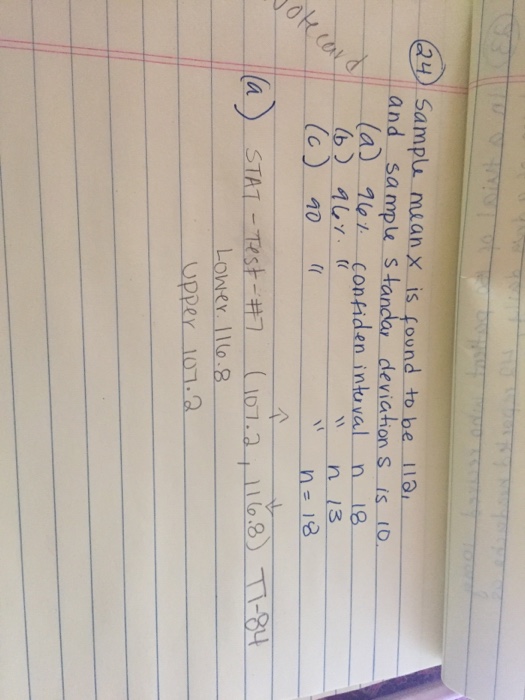 notecard
(24) Sample mean x is found to be 112,
and sample standar deviation s is 10.
(a) 96% confiden interval n 18
(b) 96%. " " n 13
(c) 90 " " n = 18
(a) STAT - Test - #7 (107.2, 116.8) TI-84
Lower 116.8
Upper 107.2